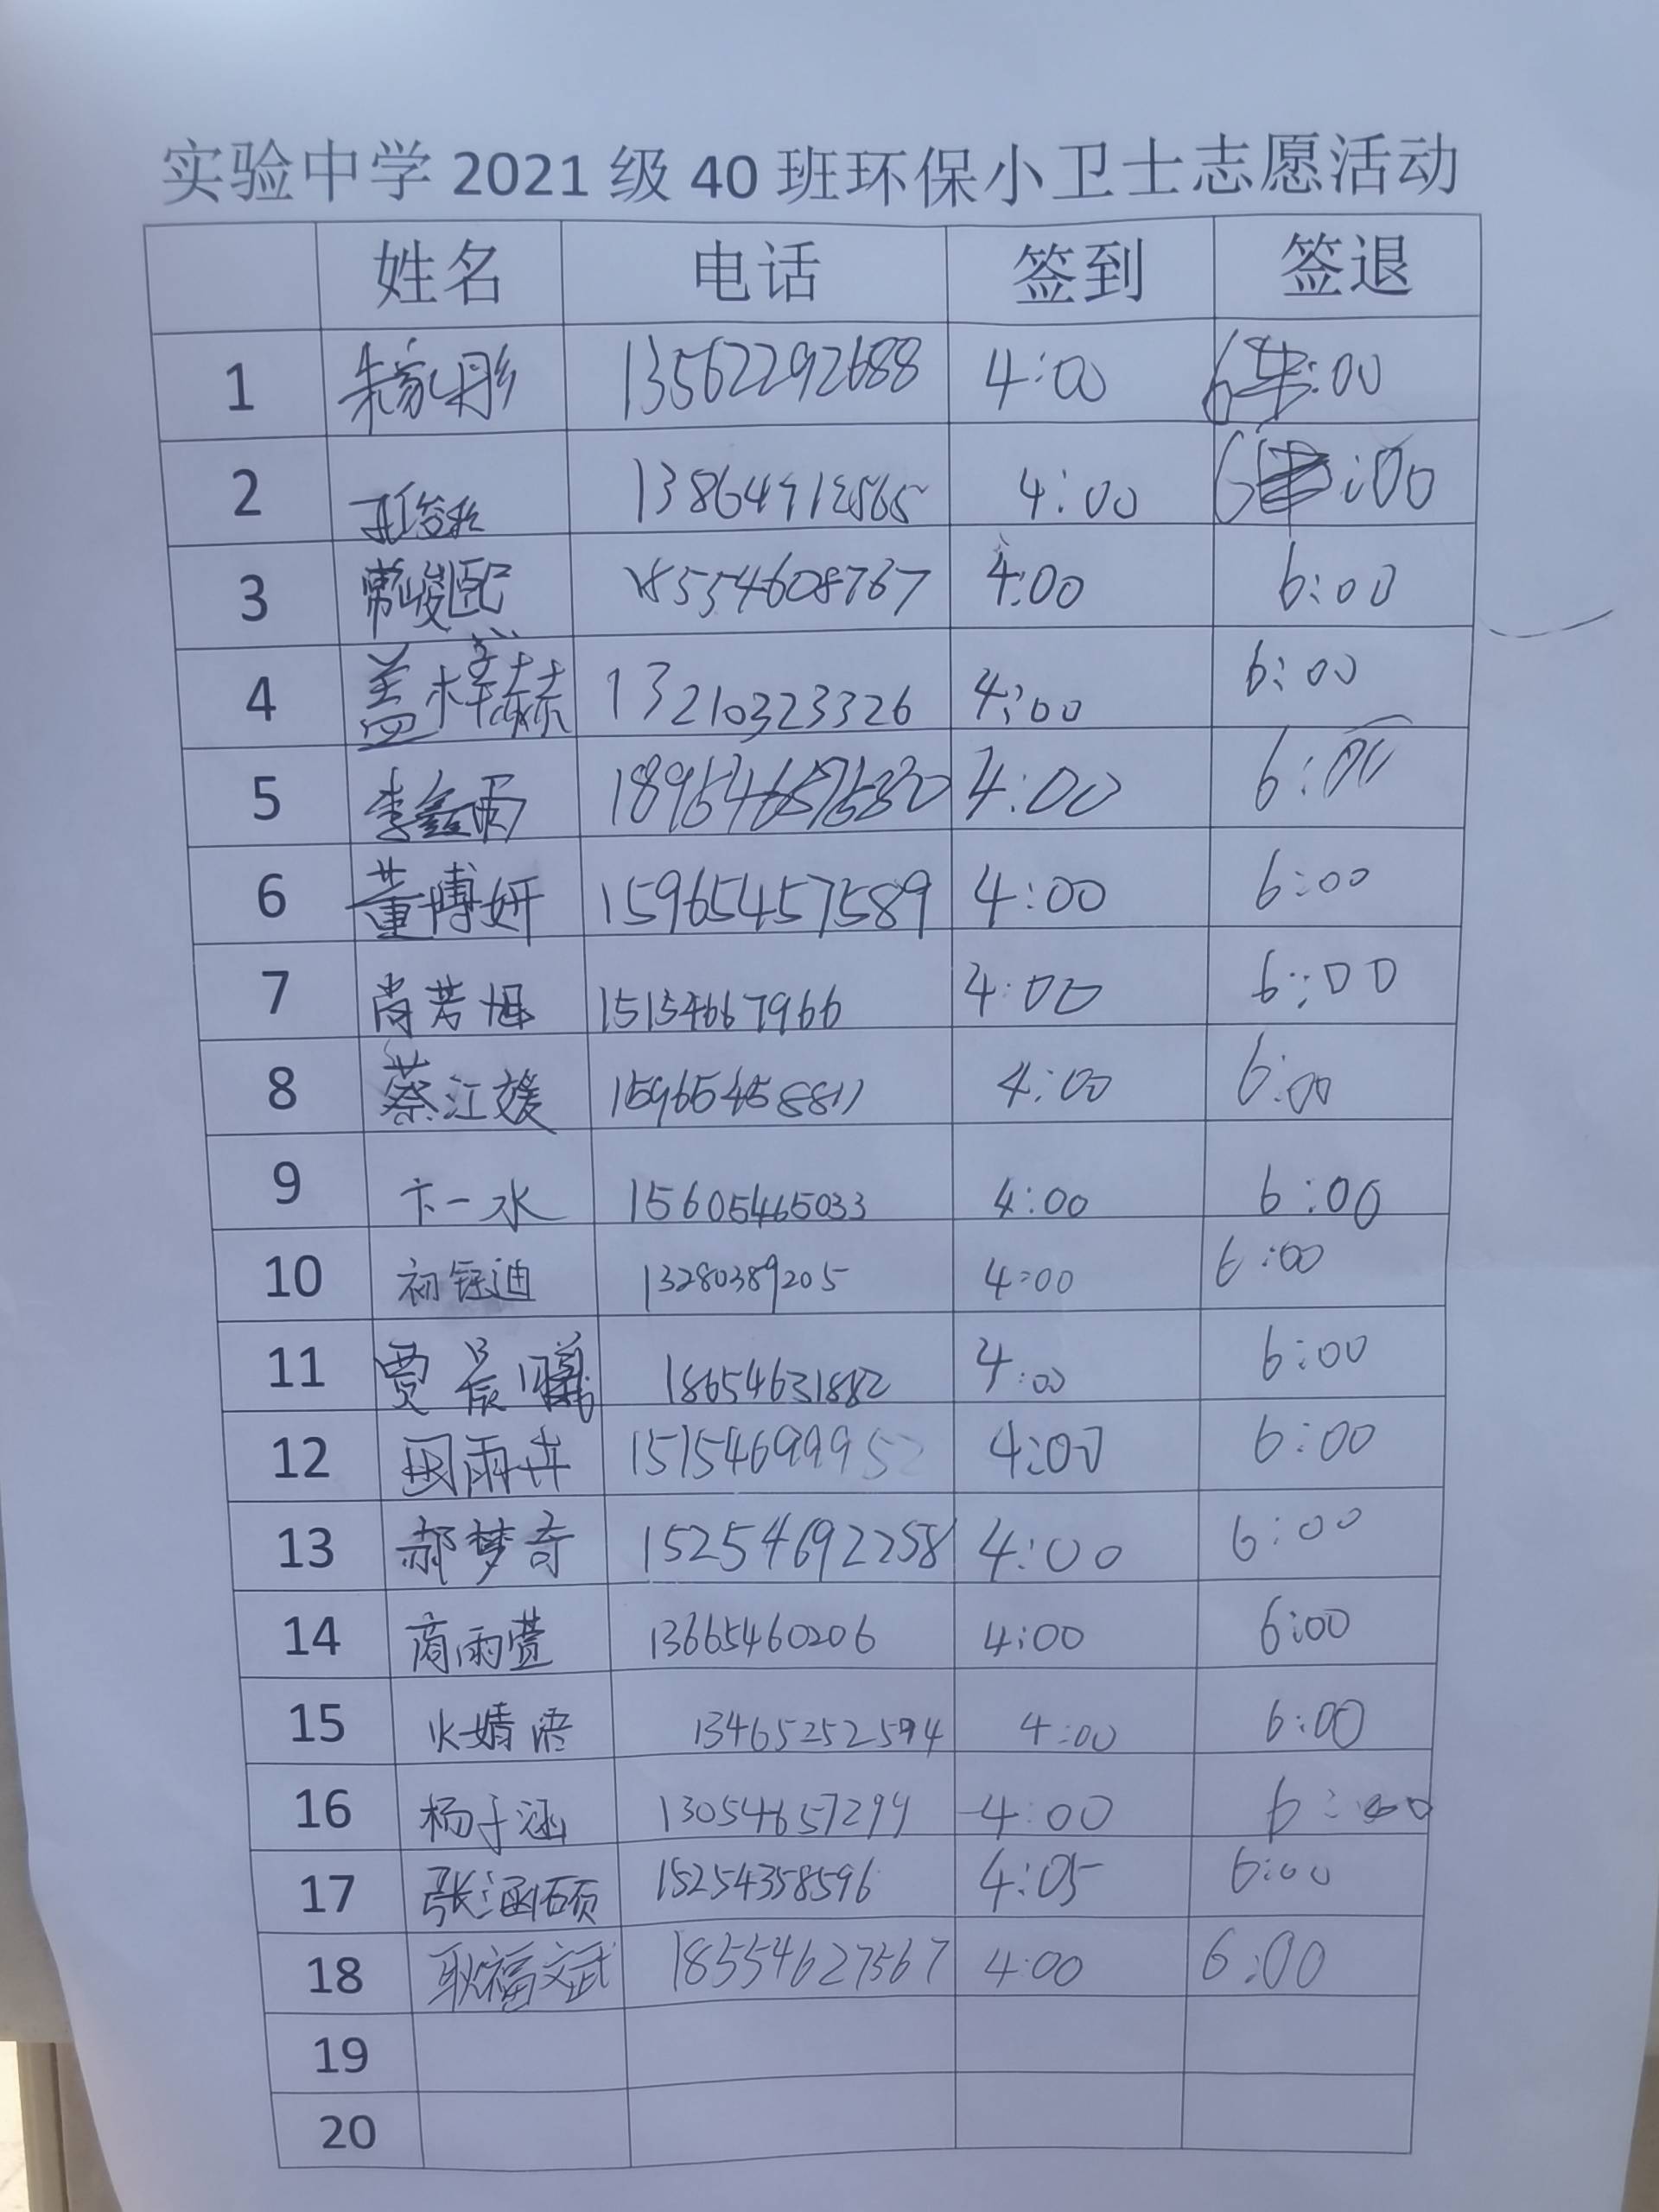 实验中学2021级40班环保小卫士志愿活动
姓名 电话 签到 签退
1 朱家彤 13562292688 4:00 6:00
2 4:00 6:00
3 常峻熙 18554608767 4:00 6:00
4 盖梓赫 13210323326 4:00 6:00
5 李鑫雨 4:00 6:00
6 董博妍 15965457589 4:00 6:00
7 尚芳旭 15154667966 4:00 6:00
8 蔡江媛 15965458811 4:00 6:00
9 卞一水 15605465033 4:00 6:00
10 初钰迪 13280389205 4:00 6:00
11 贾晨曦 18654631882 4:00 6:00
12 雨卉 15154699952 4:00 6:00
13 郝梦奇 15254692258 4:00 6:00
14 商雨萱 13665460206 4:00 6:00
15 火婧语 13465252594 4:00 6:00
16 杨子涵 13054657299 4:00 6:00
17 张涵硕 15254358596 4:05 6:00
18 耿福文武 18554627567 4:00 6:00
19
20